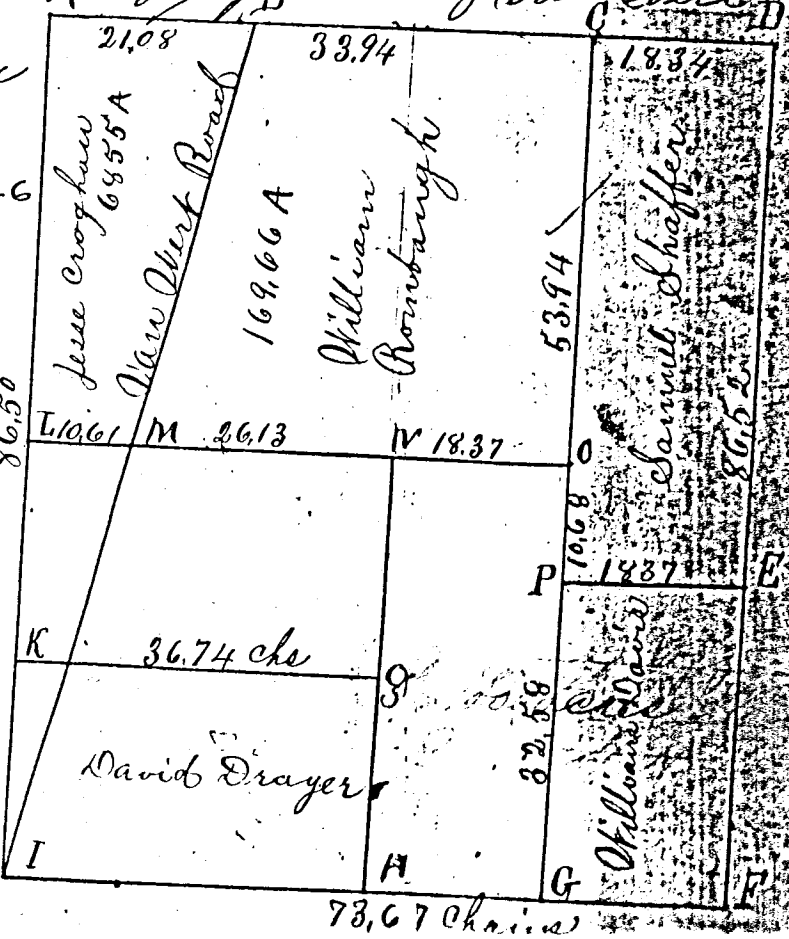 B
C
D
21,08
33.94
18.34
Jesse Croghan
6855 A
Van Wert Road
169,66 A
William
Rombaugh
53.94
Samuel Shaffer
86,52
86,50
L 10,61 M 26,13 N 18.37 O
10,68
P 1837 E
K 36.74 chs Q
32,58
William Davis
David Drayer
I H G F
73,67 Chains